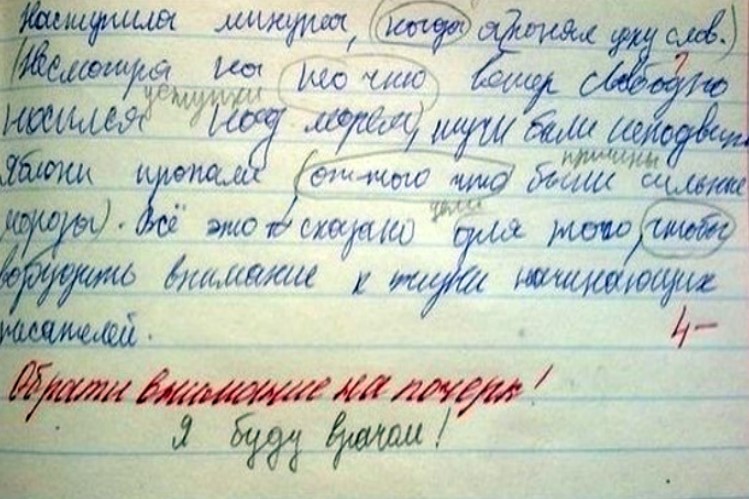 Наступила минута, (когда я понял цену слов.)
(Несмотря на то что ветер свободно
уступки
носился над морем), тучи были неподвиж
причины
Яблони пропали (оттого что были сильные
морозы). Всё это сказано для того, чтобы
цели
возбудить внимание к жизни начинающих
писателей.
4-
Обрати внимание на почерк!
Я буду врачом!